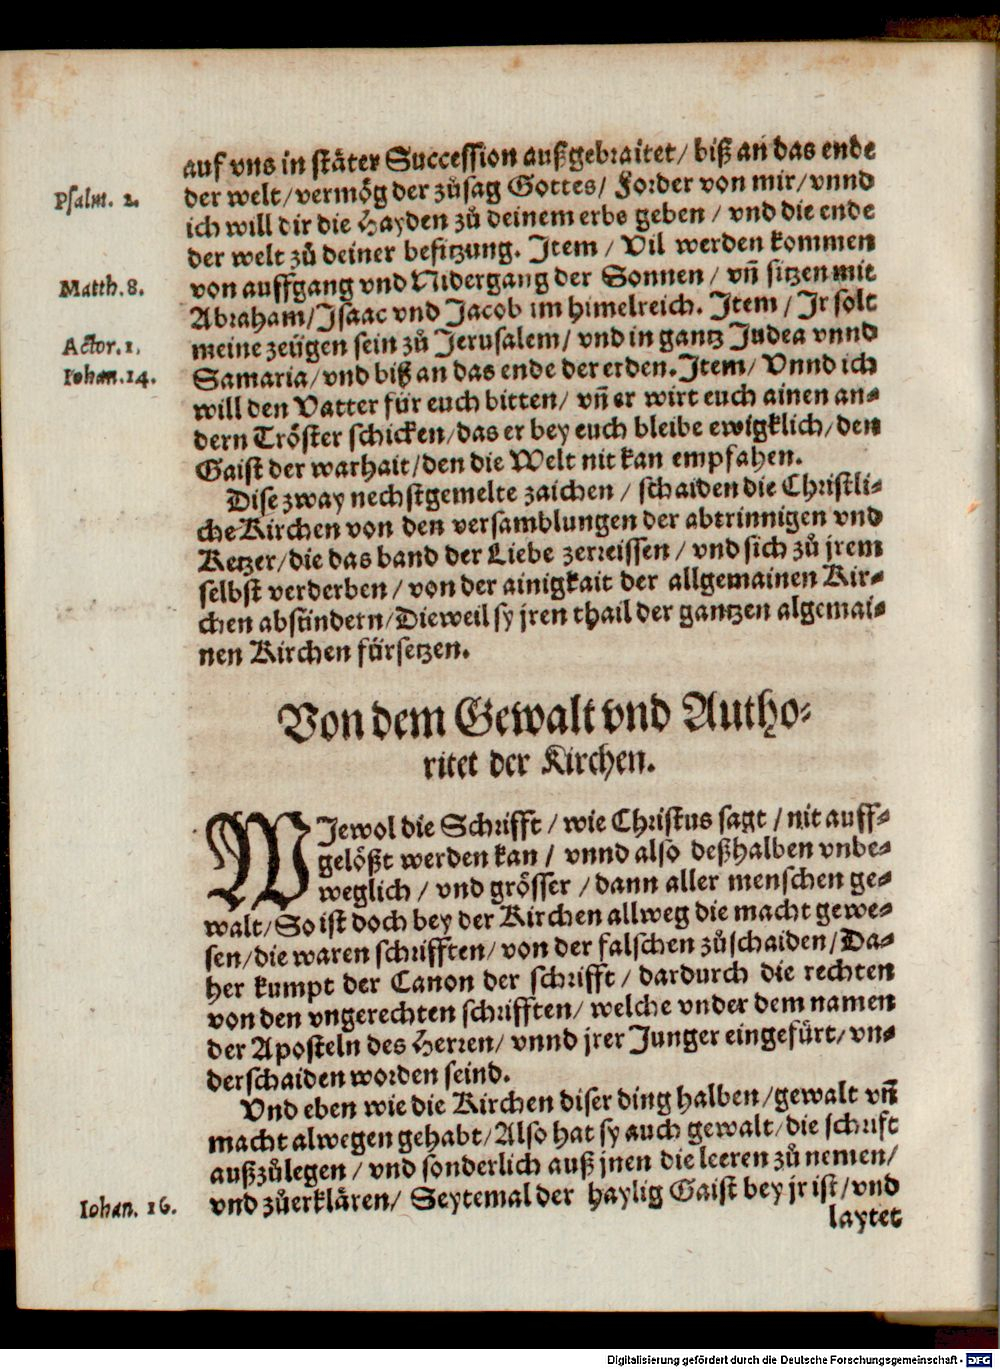 auf vns in stäter Succession außgebraitet/ biß an das ende
Psalm. 2. der welt/vermög der zůsag Gottes/ Forder von mir/vnnd
ich will dir die Hayden zů deinem erbe geben / vnd die ende
der welt zů deiner besitzung. Item / Vil werden kommen
Matth.8. von auffgang vnd Nidergang der Sonnen / vñ sitzen mit
Abraham/Isaac vnd Jacob im himelreich. Item / Ir solt
Actor.1. meine zeügen sein zů Jerusalem/ vnd in gantz Judea vnnd
Iohan.14. Samaria/vnd biß an das ende der erden. Item/ Vnnd ich
will den Vatter für euch bitten/ vñ er wirt euch ainen an-
dern Tröster schicken/das er bey euch bleibe ewigklich/den
Gaist der warhait/den die Welt nit kan empfahen.
Dise zway nechstgemelte zaichen / schaiden die Christli-
che Kirchen von den versamblungen der abtrinnigen vnd
Ketzer/die das band der Liebe zerreissen / vnd sich zů jrem
selbst verderben / von der ainigkait der allgemainen Kir-
chen absündern/Dieweil sy jren thail der gantzen algemai-
nen Kirchen fürsetzen.
Von dem Gewalt vnd Autho-
ritet der Kirchen.
WJewol die Schrifft / wie Christus sagt / nit auff-
gelößt werden kan / vnnd also deßhalben vnbe-
weglich / vnd grösser / dann aller menschen ge-
walt/So ist doch bey der Kirchen allweg die macht gewe-
sen/die waren schrifften/von der falschen zůschaiden/Da-
her kumpt der Canon der schrifft / dardurch die rechten
von den vngerechten schrifften/ welche vnder dem namen
der Aposteln des Herren/ vnnd jrer Junger eingefürt/vn-
derschaiden worden seind.
Vnd eben wie die Kirchen diser ding halben/gewalt vñ
macht alwegen gehabt/Also hat sy auch gewalt/die schrift
außzůlegen / vnd sonderlich auß jnen die leeren zů nemen/
Iohan. 16. vnd zůerklären/ Seytemal der haylig Gaist bey jr ist/vnd
laytet
Digitalisierung gefördert durch die Deutsche Forschungsgemeinschaft - DFG